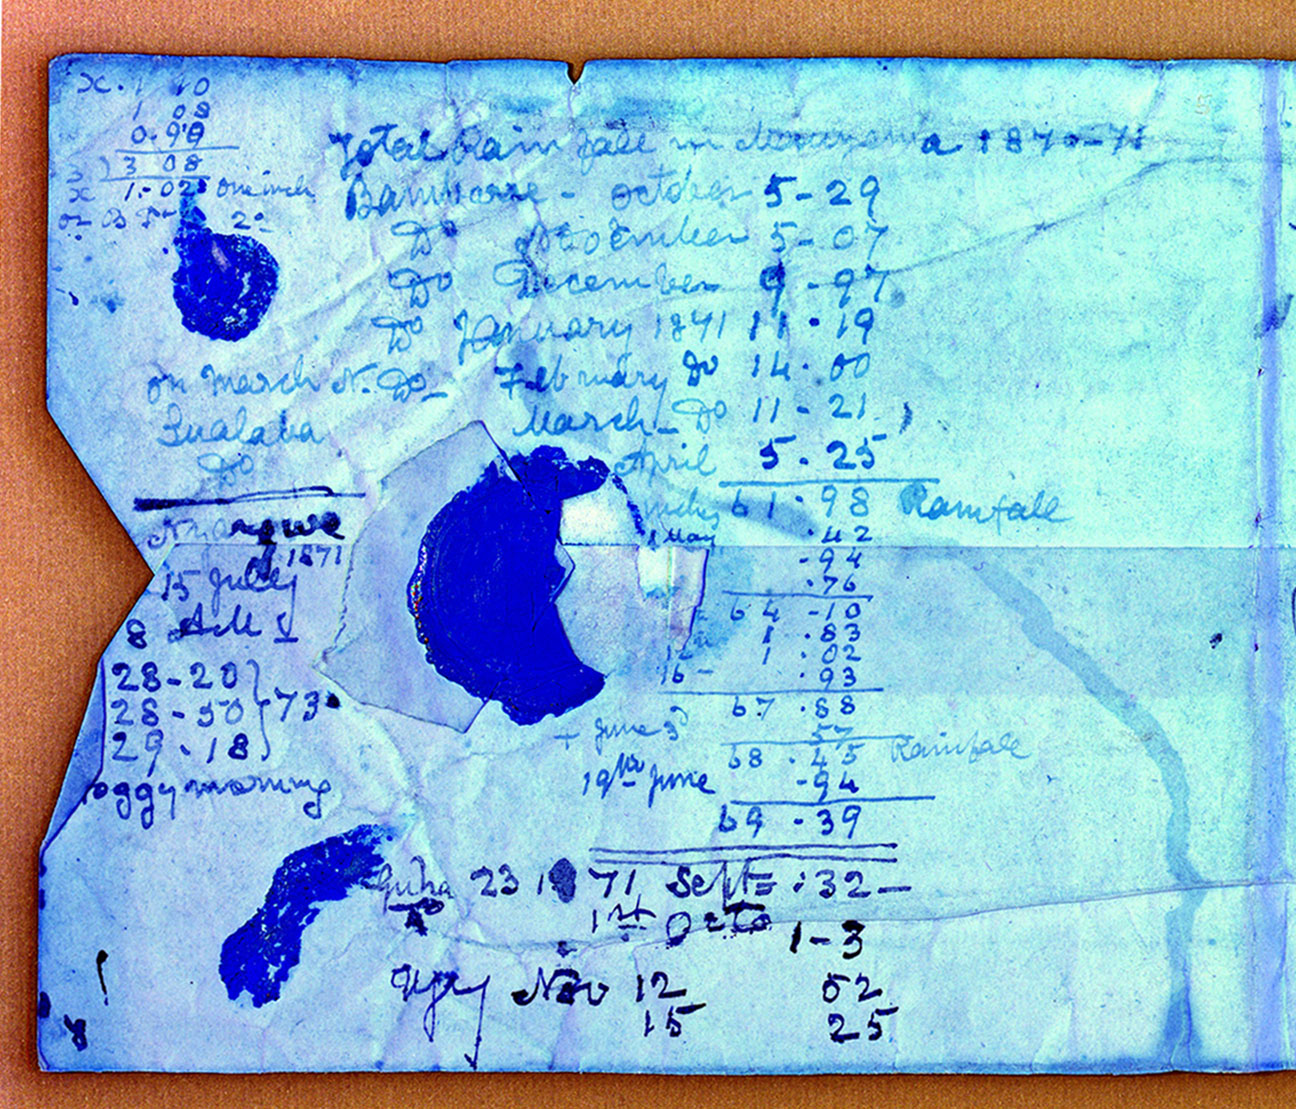 x. 1 10
1 08
0.90
3) 3 08
x 1.02 one inch
2º
Total Rain fall in Manyema 1870-71
Bambarre - october 5-29
Dº November 5-07
Dº December 9-97
Dº January 1871 11.19
on march N. Dº February Dº 14.00
Lualaba March - Dº 11-21
Dº April 5.25
inches 61.98 Rainfall
May .42
-94
.76
64-10
1.83
12 1.02
16- .93
67.88
+ June 3d 57
68.45 Rainfale
19th June -94
69.39
Nyangwe
15 July 1871
8 AM
28-20
28-50 } 73.
29.18
foggy morning
23 1871 Sept= .32-
1st Octo 1-3
Ujij Nov 12 52
15 25